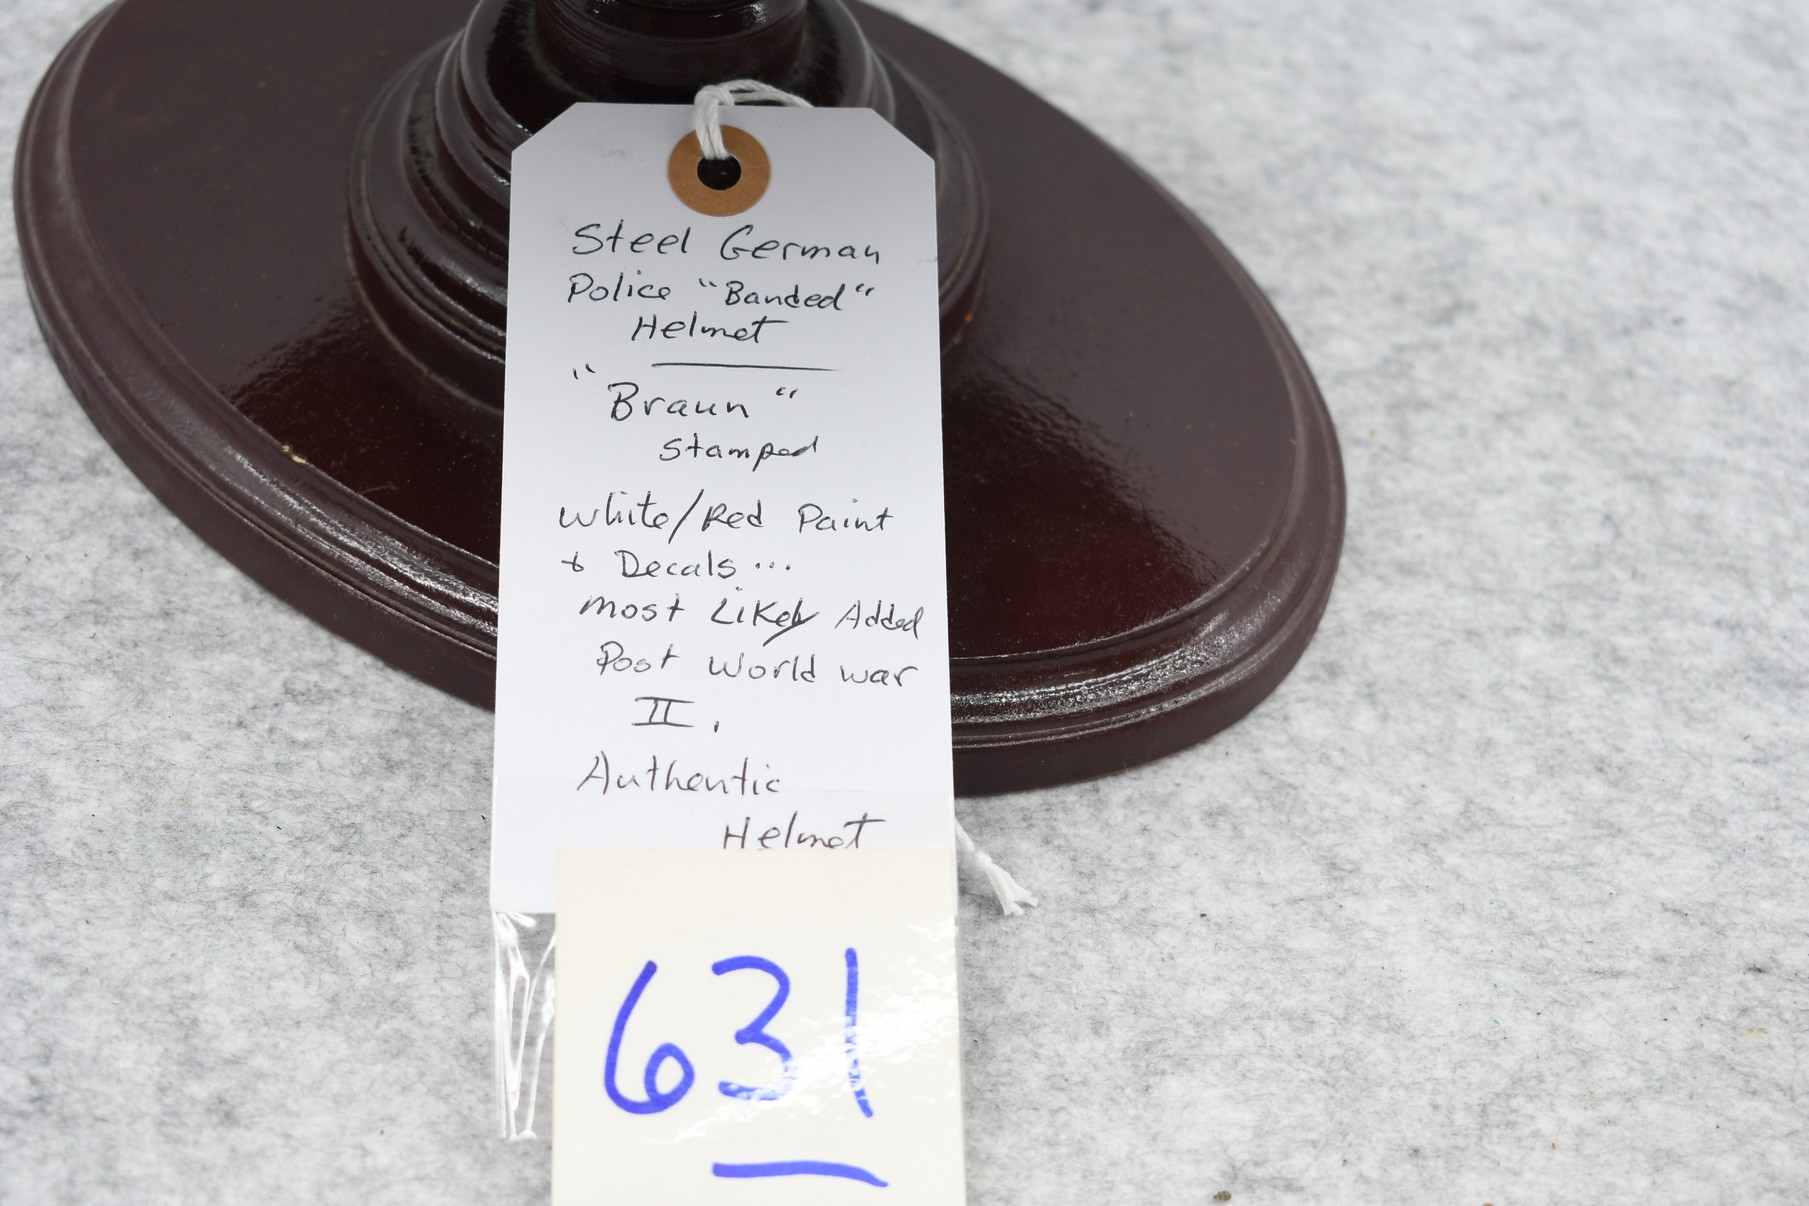 Steel German
Police "Banded"
Helmet
"Braun"
Stamped
White/Red Paint
& Decals...
most Likely Added
Post World War
II.
Authentic
Helmet
631